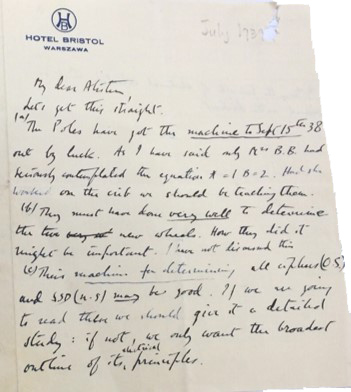 HB
HOTEL BRISTOL
WARSZAWA
July 1939
My dear Alistair,
Let's get this straight.
(a) The Poles have got the machine to Sept 15th 38
out by luck. As I have said only Mrs B.B. had
seriously contemplated the equation A=1 B=2. Had she
worked on the crib we should be teaching them.
(b) They must have done very well to determine
the two new wheels. How they did it
might be important. I have not this
(c) Their machine for determining all ciphers (O.S)
and SSD (n.S) may be good. If we are going
to read them we should give it a detailed
study: if not, we only want the broadest
outline of its electrical principles.